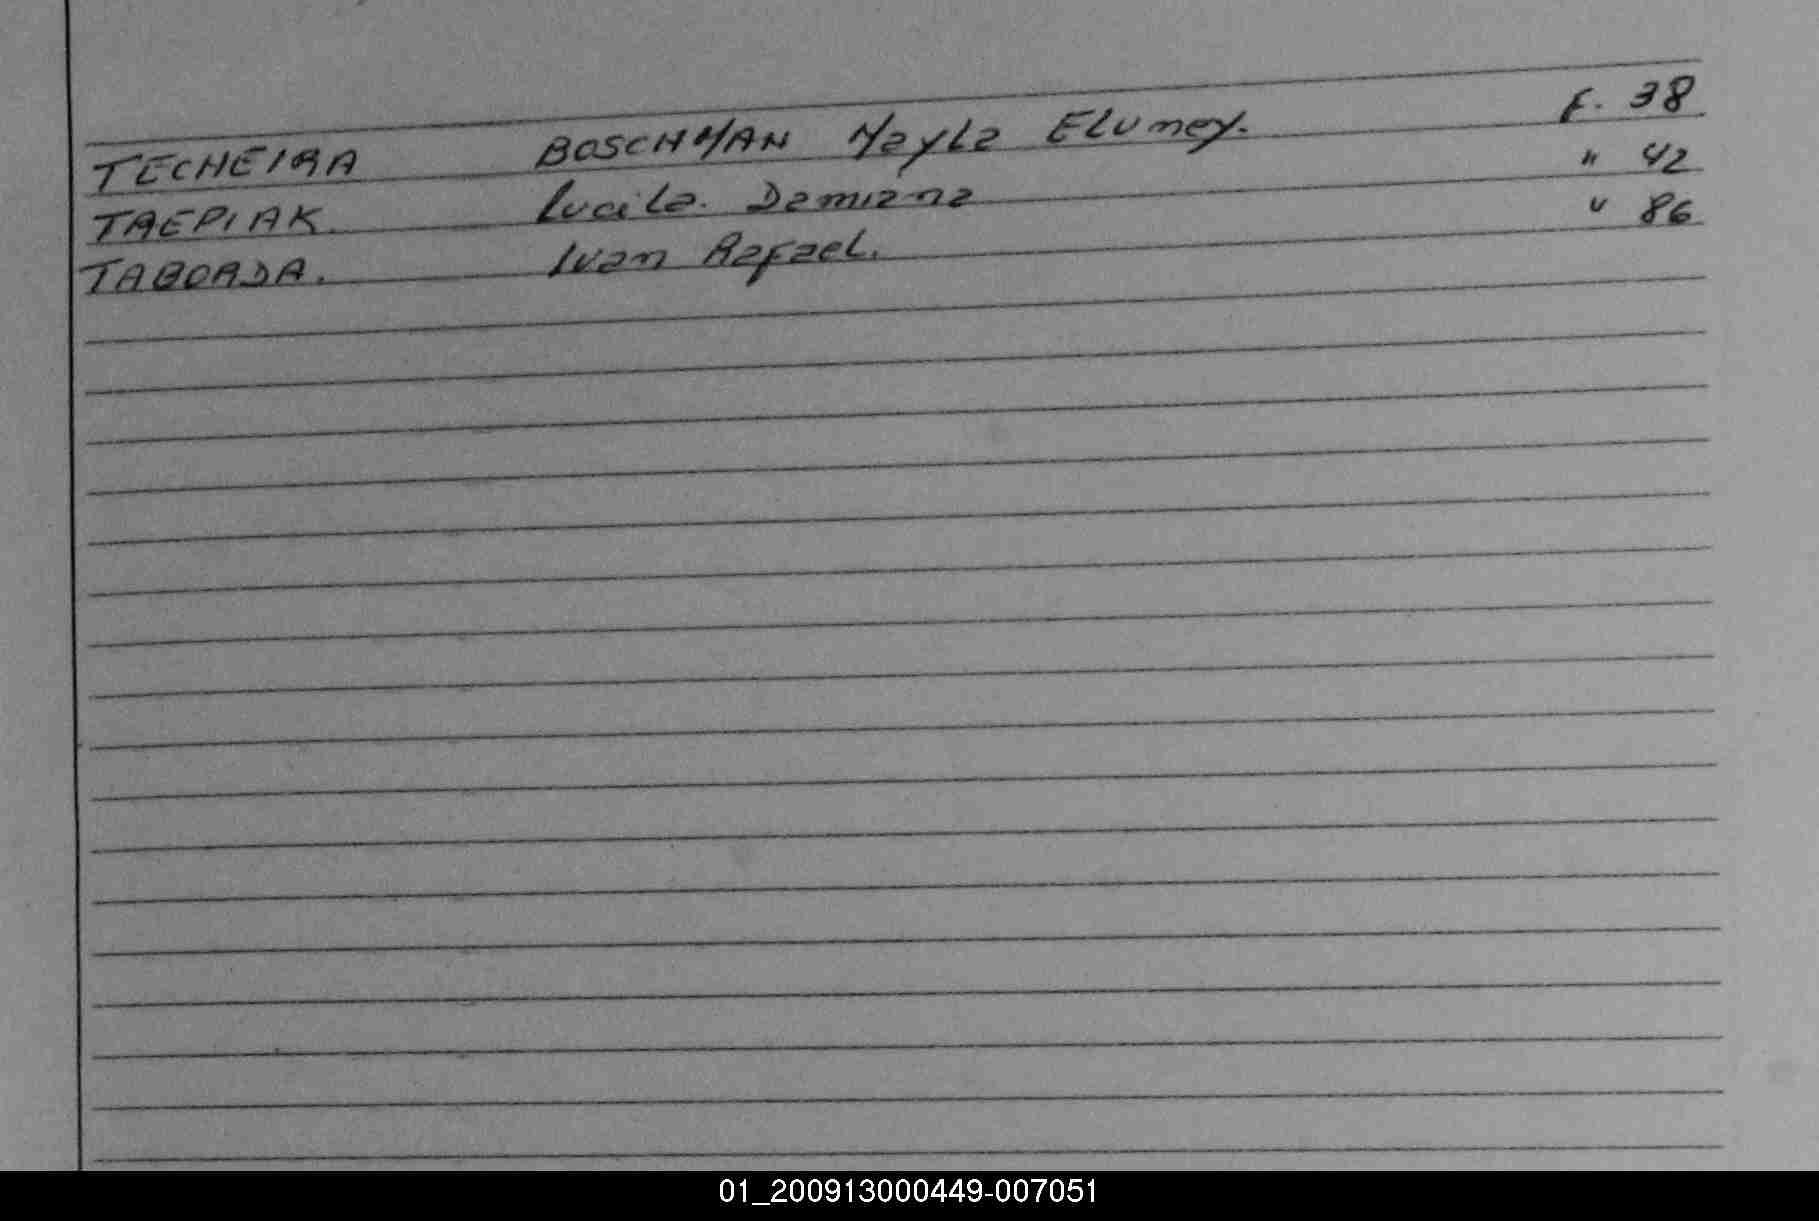 TECHEIRA BOSCHMAN Mayla Elumey. F. 38
TREPIAK. Lucila. Damiana " 42
TABORDA. Ivan Rafael. " 86
01_200913000449-007051